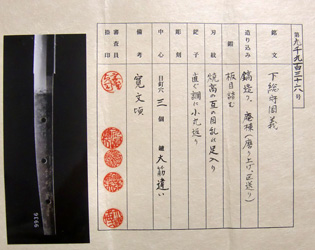 第九千九百三十六号
銘文
下総守国義
造り込み
鎬造り、庵棟（磨り上げ、区送り）
鍛
板目詰む
刃紋
焼高の直の因乱れ足入り
鋩子
直ぐ調に小丸返り
彫刻
中心
目釘穴 三 個 鑢 大筋違い
備考
寛文頃
審査員
指印
9936